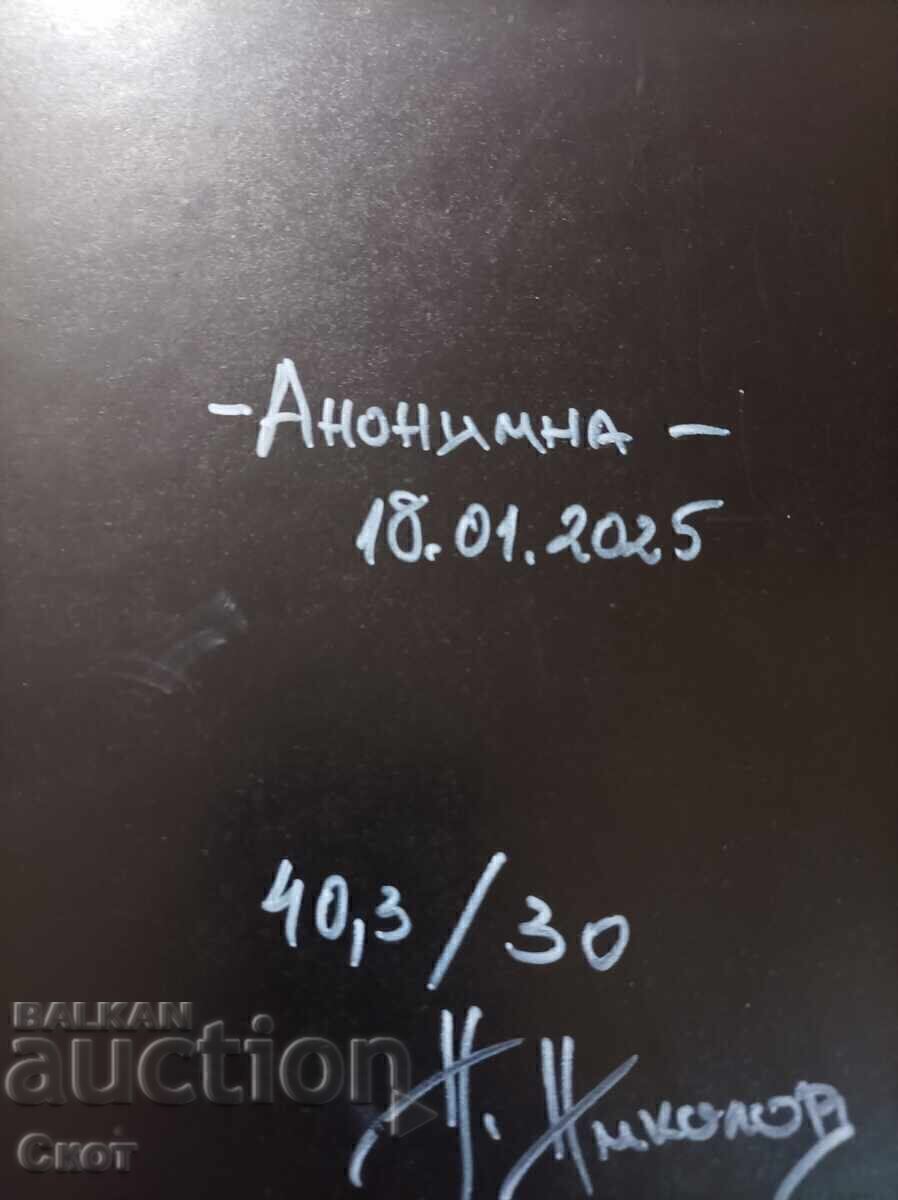 -Анонимна-
18.01.2025
40,3/30
Н. Николов
BALKAN
auction
Скот